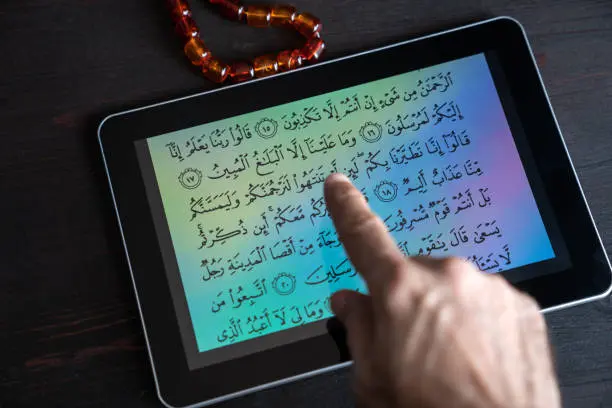 الرَّحْمَٰنُ مِن شَيْءٍ إِنْ أَنتُمْ إِلَّا تَكْذِبُونَ ١٥ قَالُوا رَبُّنَا يَعْلَمُ إِنَّا
إِلَيْكُمْ لَمُرْسَلُونَ ١٦ وَمَا عَلَيْنَا إِلَّا الْبَلَٰغُ الْمُبِينُ ١٧
قَالُوا إِنَّا تَطَيَّرْنَا بِكُمْ تَنتَهُوا لَنَرْجُمَنَّكُمْ وَلَيَمَسَّنَّكُم
مِّنَّا عَذَابٌ أَلِيمٌ ١٨ مَّعَكُمْ أَئِن ذُكِّرْتُم
بَلْ أَنتُمْ قَوْمٌ مُّسْرِفُونَ مِنْ أَقْصَا الْمَدِينَةِ رَجُلٌ
يَسْعَىٰ قَالَ يَٰقَوْمِ ٢٠ اتَّبِعُوا مَن
لَّا وَمَا لِيَ لَا أَعْبُدُ الَّذِي